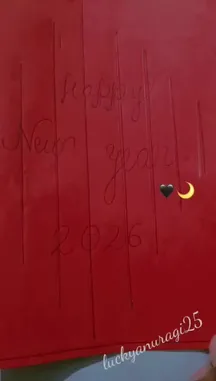 Happy
New year
2026
🖤🌙
luckyanuragi25